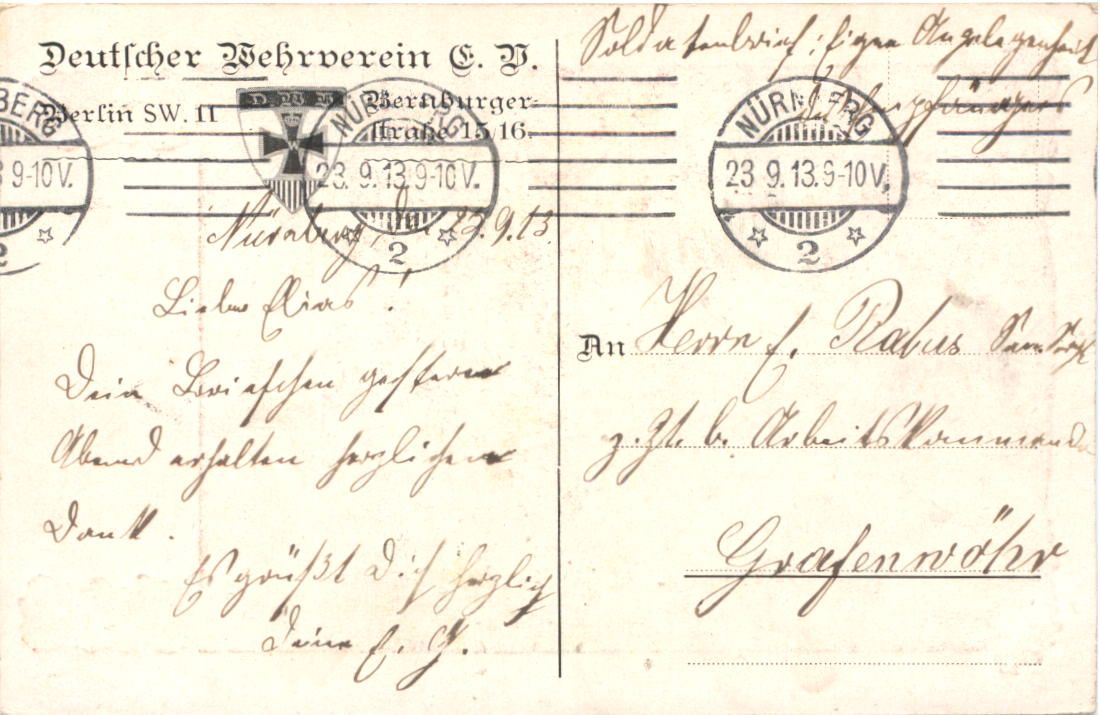 Deutscher Wehrverein E. V.
Berlin SW. 11
Bernburger-
straße 15/16.
D W V
W
NÜRNBERG
23. 9. 13. 9-10 V.
2
NÜRNBERG
23. 9. 13. 9-10 V.
2
NÜRNBERG
23. 9. 13. 9-10 V.
2
Soldatenbrief; Eigene Angelegenheit
des Empfängers
Nürnberg, den 23.9.13.
Lieber Elias!
Dein Briefchen gestern
Abend erhalten herzlichen
Dank.
Es grüßt Dich herzlich
Deine E. G.
An Herrn E. Rabus
z. Zt. b. Arbeitskommando
Grafenwöhr